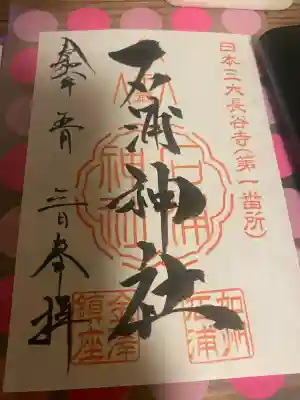 日本三大長谷寺(第一番所)
加州
石浦
石浦神社
石浦
神社
金澤
鎮座
五月 三日 奉拝